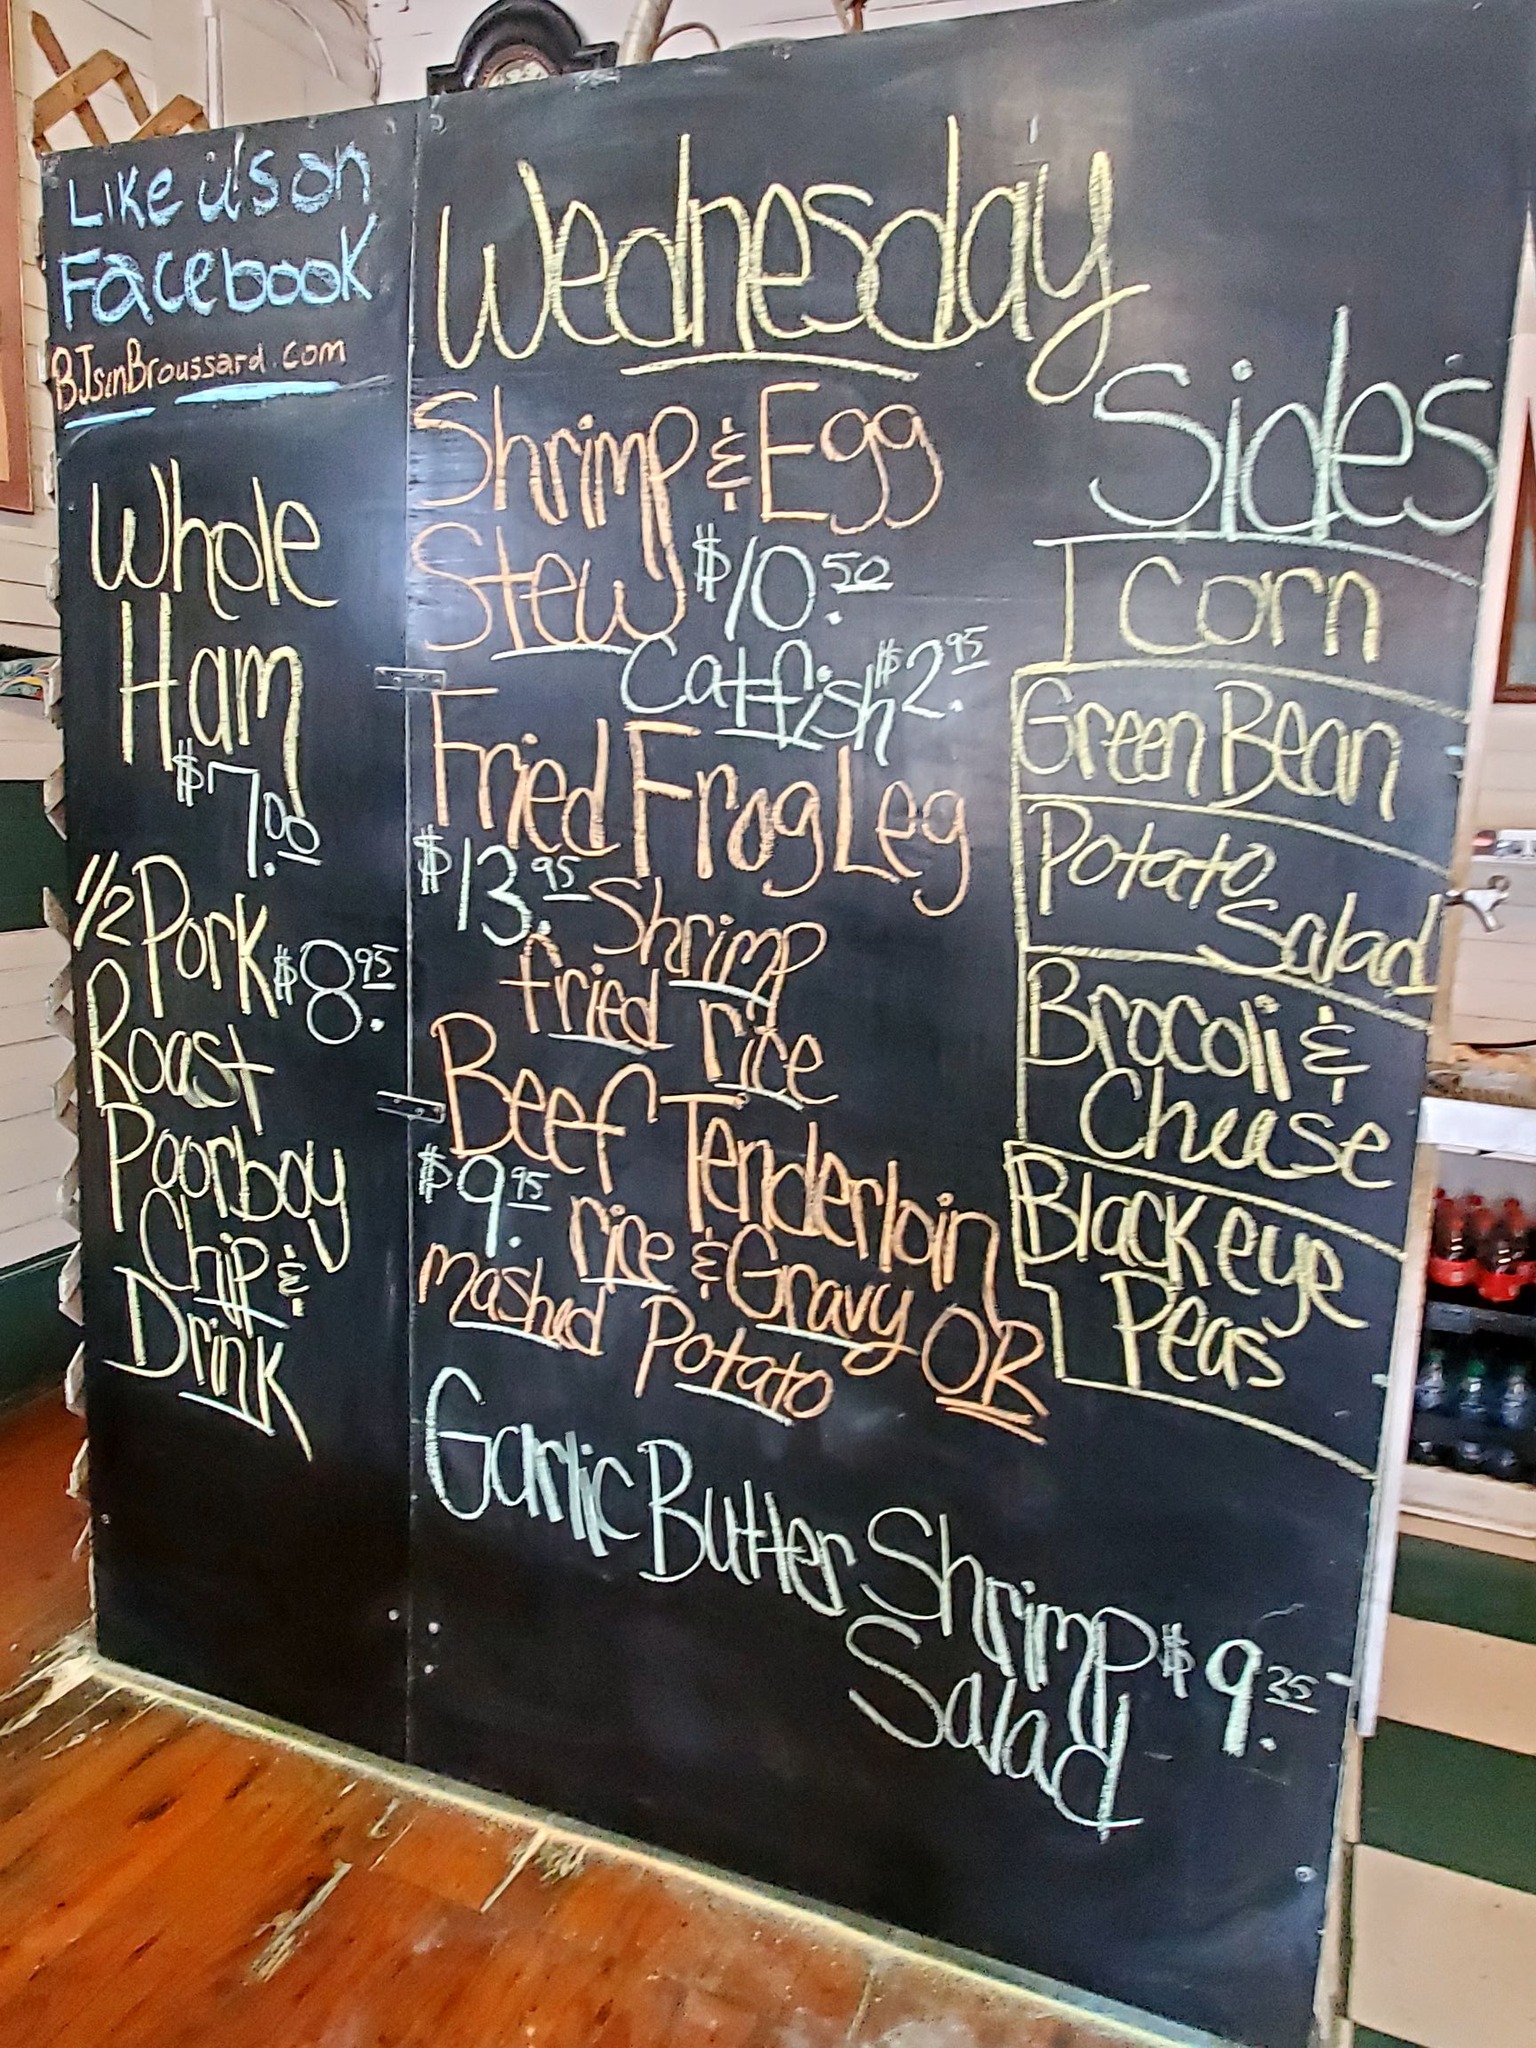 Like us on
Facebook
BJsinBroussard.com
Whole
Ham
$7.00
1/2 Pork $8.95
Roast
Poorboy
Chip &
Drink
Wednesday
Shrimp & Egg
Stew $10.50
Catfish $2.95
Fried Frog Leg
$13.95 Shrimp
fried rice
Beef Tenderloin
$9.95 rice & Gravy OR
mashed Potato
Garlic Butter Shrimp $9.25
Salad
Sides
Corn
Green Bean
Potato
Salad
Brocoli &
Cheese
Blackeye
Peas